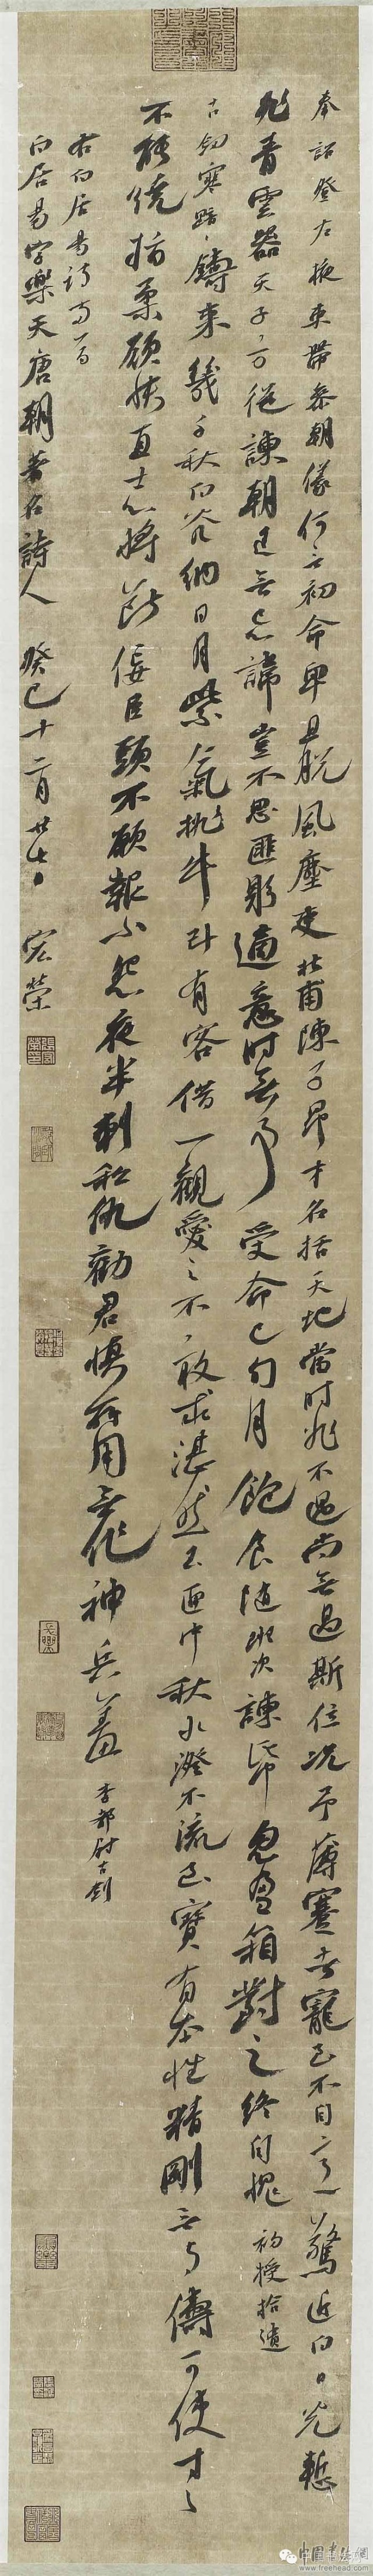 奉詔登左掖束帶參朝儀何言初命卑且脫風塵吏杜甫陳子昂才名括天地當時非不遇尚無過斯位況予薄蹇者寵至不自意驚近白日光慙
非青雲器天子方從諫朝廷無忌諱豈不思匪躬適遇時無事受命已旬月飽食隨班次諫紙忽盈箱對之終自愧 初授拾遺
古劍寒黯黯鑄來幾千秋白光納日月紫氣排牛斗有客借一觀愛之不敢求湛然玉匣中秋水澄不流至寶有本性精剛無與儔可使寸寸
不能繞指柔願快直士心將斷佞臣頭不願報小怨夜半刺私仇勸君慎所用無作神兵羞 李都尉古劍
右白居易詩兩首
白居易字樂天唐朝著名詩人 癸巳十二月廿七日 宏榮
中國書法網
www.freehead.com